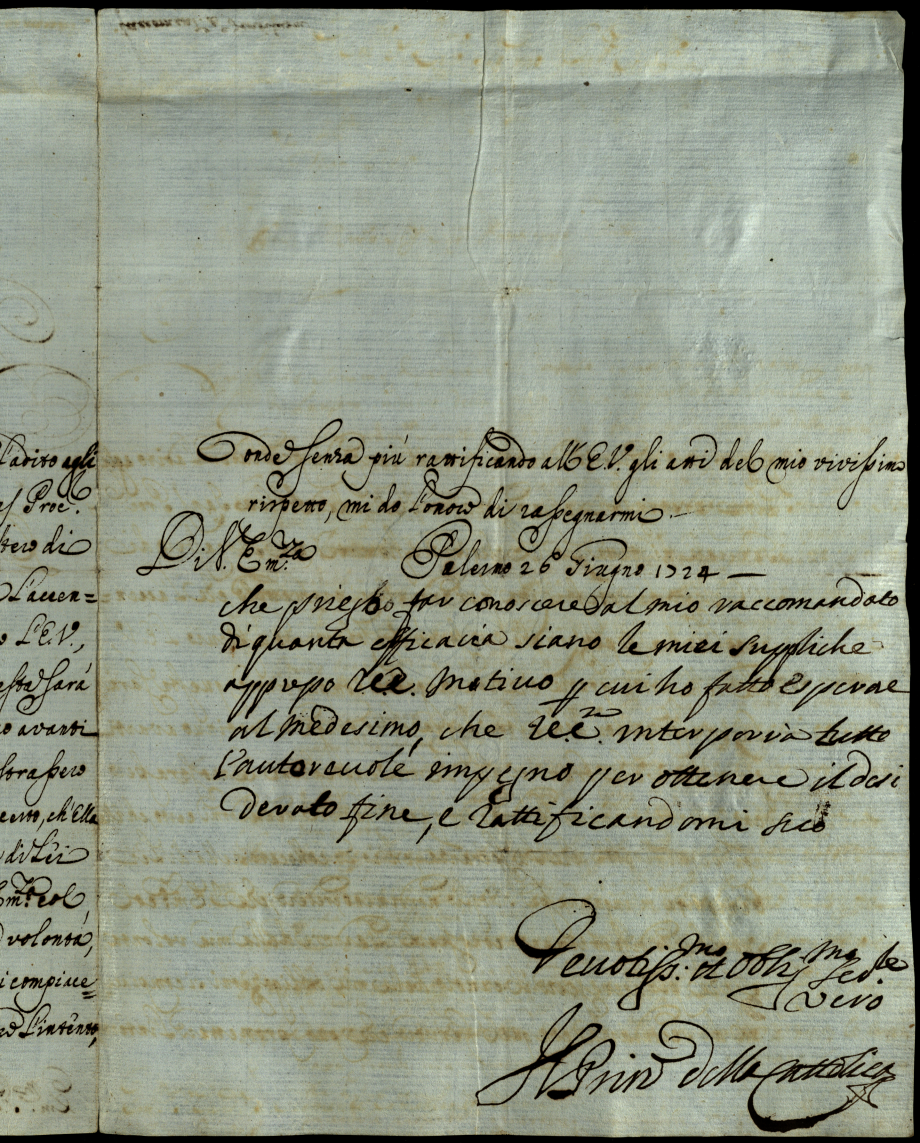 l'adito agli
es Proc.
stero di
L'accen=
o L'E.V.,
esta sarà
no avanti
strassero
ento, ch'Ella
di Lei
Em.za col
volontà,
i compiace=
ed l'intento,
Onde senza più rattificando all'E.V. gli atti del mio vivissimo
rispetto, mi do l'onore di rassegnarmi
Di V. Em.za Palermo 26 Giugno 1724
che priego far conoscere al mio raccomandato
di quanta efficacia siano le miei suppliche
appreso V.E. Motivo p cui ho fatto Esperare
al medesimo, che V.E.za interporrà tutto
l'autorevole impegno per ottenere il desi
derato fine, e rattificandomi sec͞o
Devotiss.mo et Obblig.mo Ser.te
Vero
Il Prin.e della Cattolica